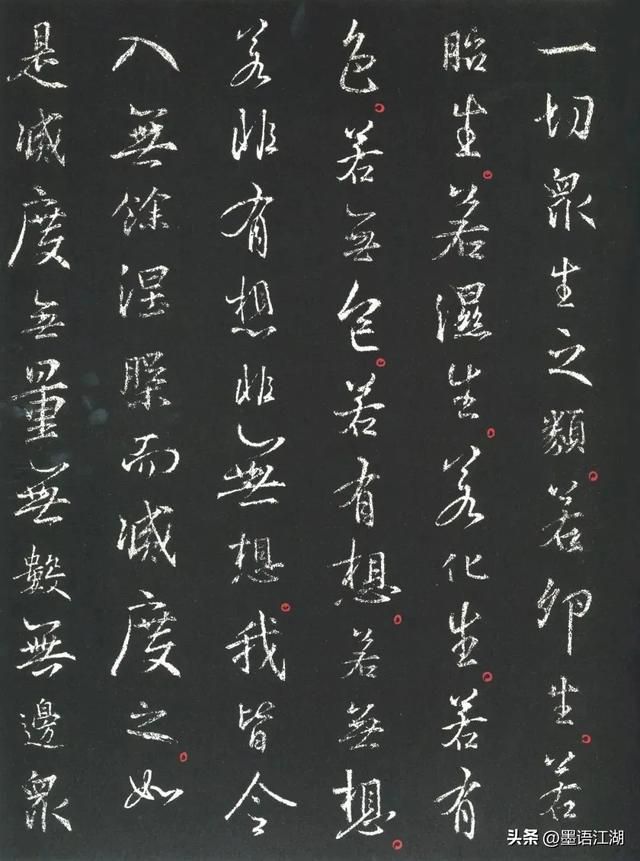 一切衆生之類若卵生若
胎生若濕生若化生若有
色若無色若有想若無想
若非有想非無想我皆令
入無餘涅槃而滅度之如
是滅度無量無數無邊衆
头条@墨语江湖